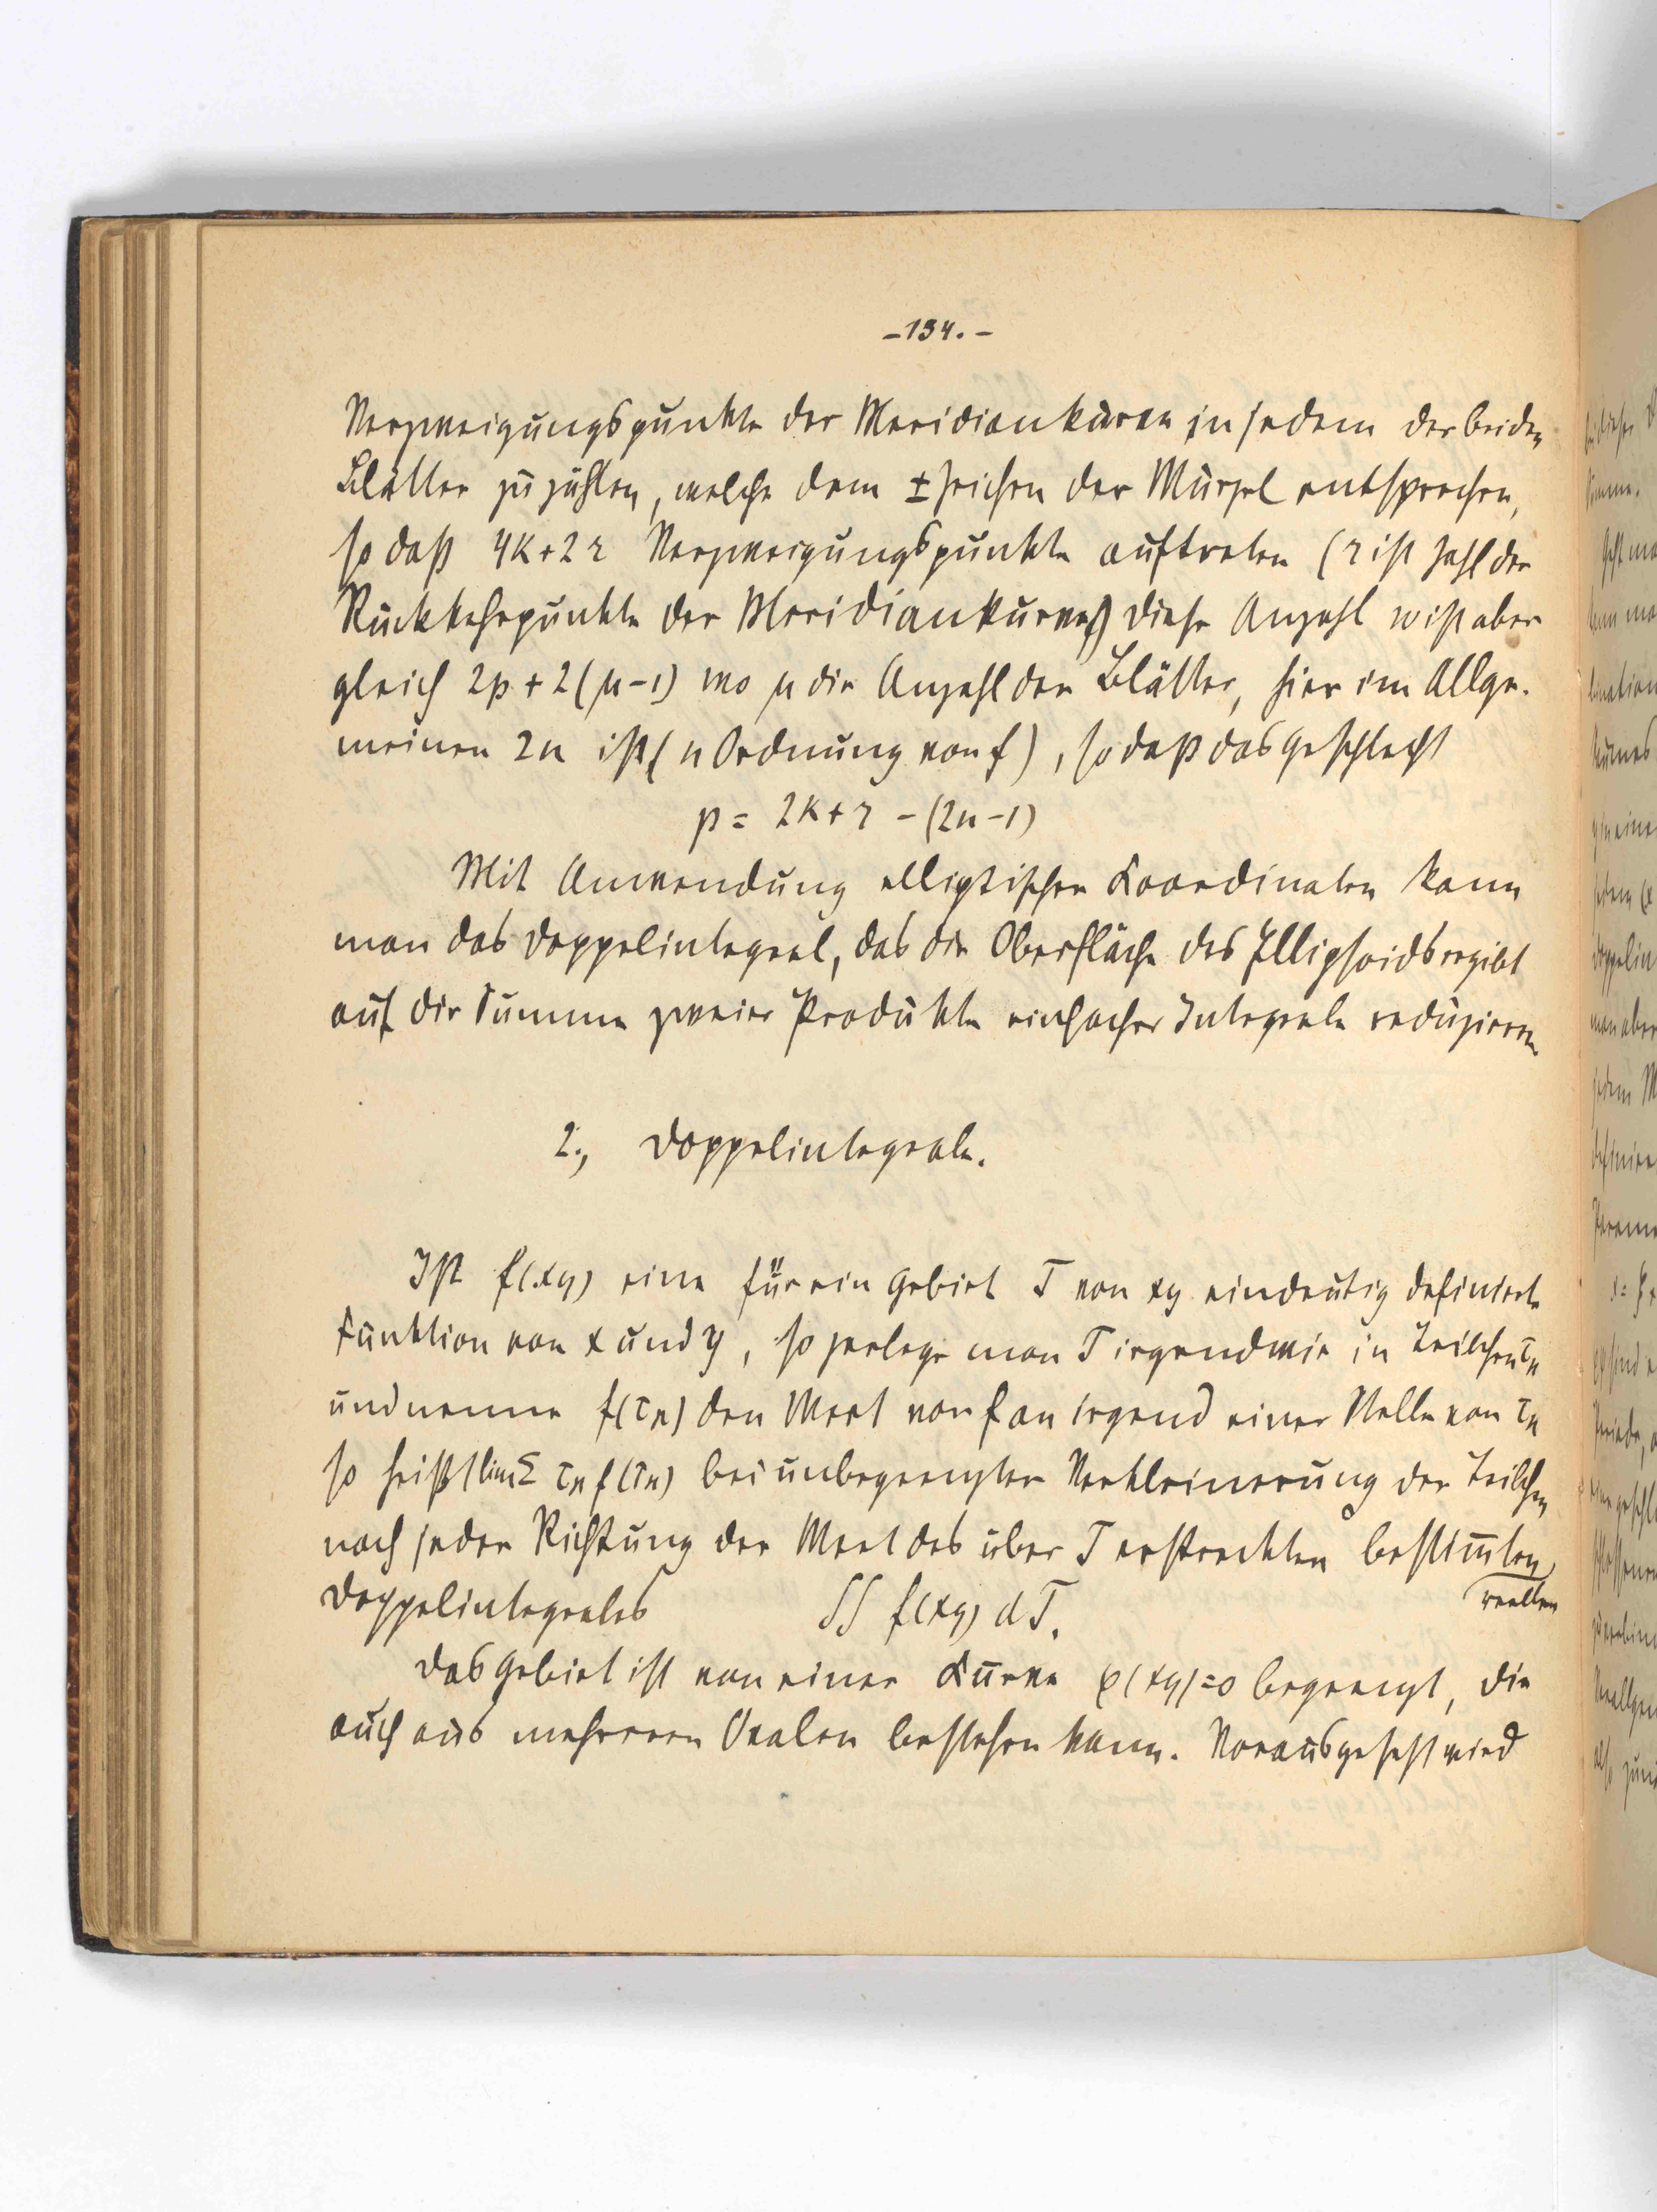 -134.-
Verzweigungspunkte der Meridiankurven in jedem der beiden
Blätter zu zählen, welche dem ± Zeichen der Wurzel entsprechen,
so daß 4k+2r Verzweigungspunkte auftreten (r ist Zahl der
Rückkehrpunkte der Meridiankurve) diese Anzahl w ist aber
gleich 2p+2(μ-1) wo μ die Anzahl der Blätter, hier im Allge-
meinen 2n ist (n Ordnung von f), so daß das Geschlecht
p = 2k+r-(2n-1)
Mit Anwendung elliptischer Koordinaten kann
man das Doppelintegral, das die Oberfläche des Ellipsoids ergibt
auf die Summe zweier Produkte einfacher Integrale reduzieren
2., Doppelintegrale.
Ist f(xy) eine für ein Gebiet T von xy eindeutig definierte
Funktion von x und y, so zerlege man T irgendwie in Teilchen τκ
und nenne f(τκ) den Wert von f an irgend einer Stelle von τκ
so heißt lim Σ τκ f(τκ) bei unbegrenzter Verkleinerung der Teilchen
nach jeder Richtung der Wert des über T erstreckten bestim̅ten
reellen
Doppelintegrales ∫∫ f(xy) dT.
Das Gebiet ist von einer Kurve φ(xy)=0 begrenzt, die
auch aus mehreren Ovalen bestehen kann. Vorausgesetzt wird